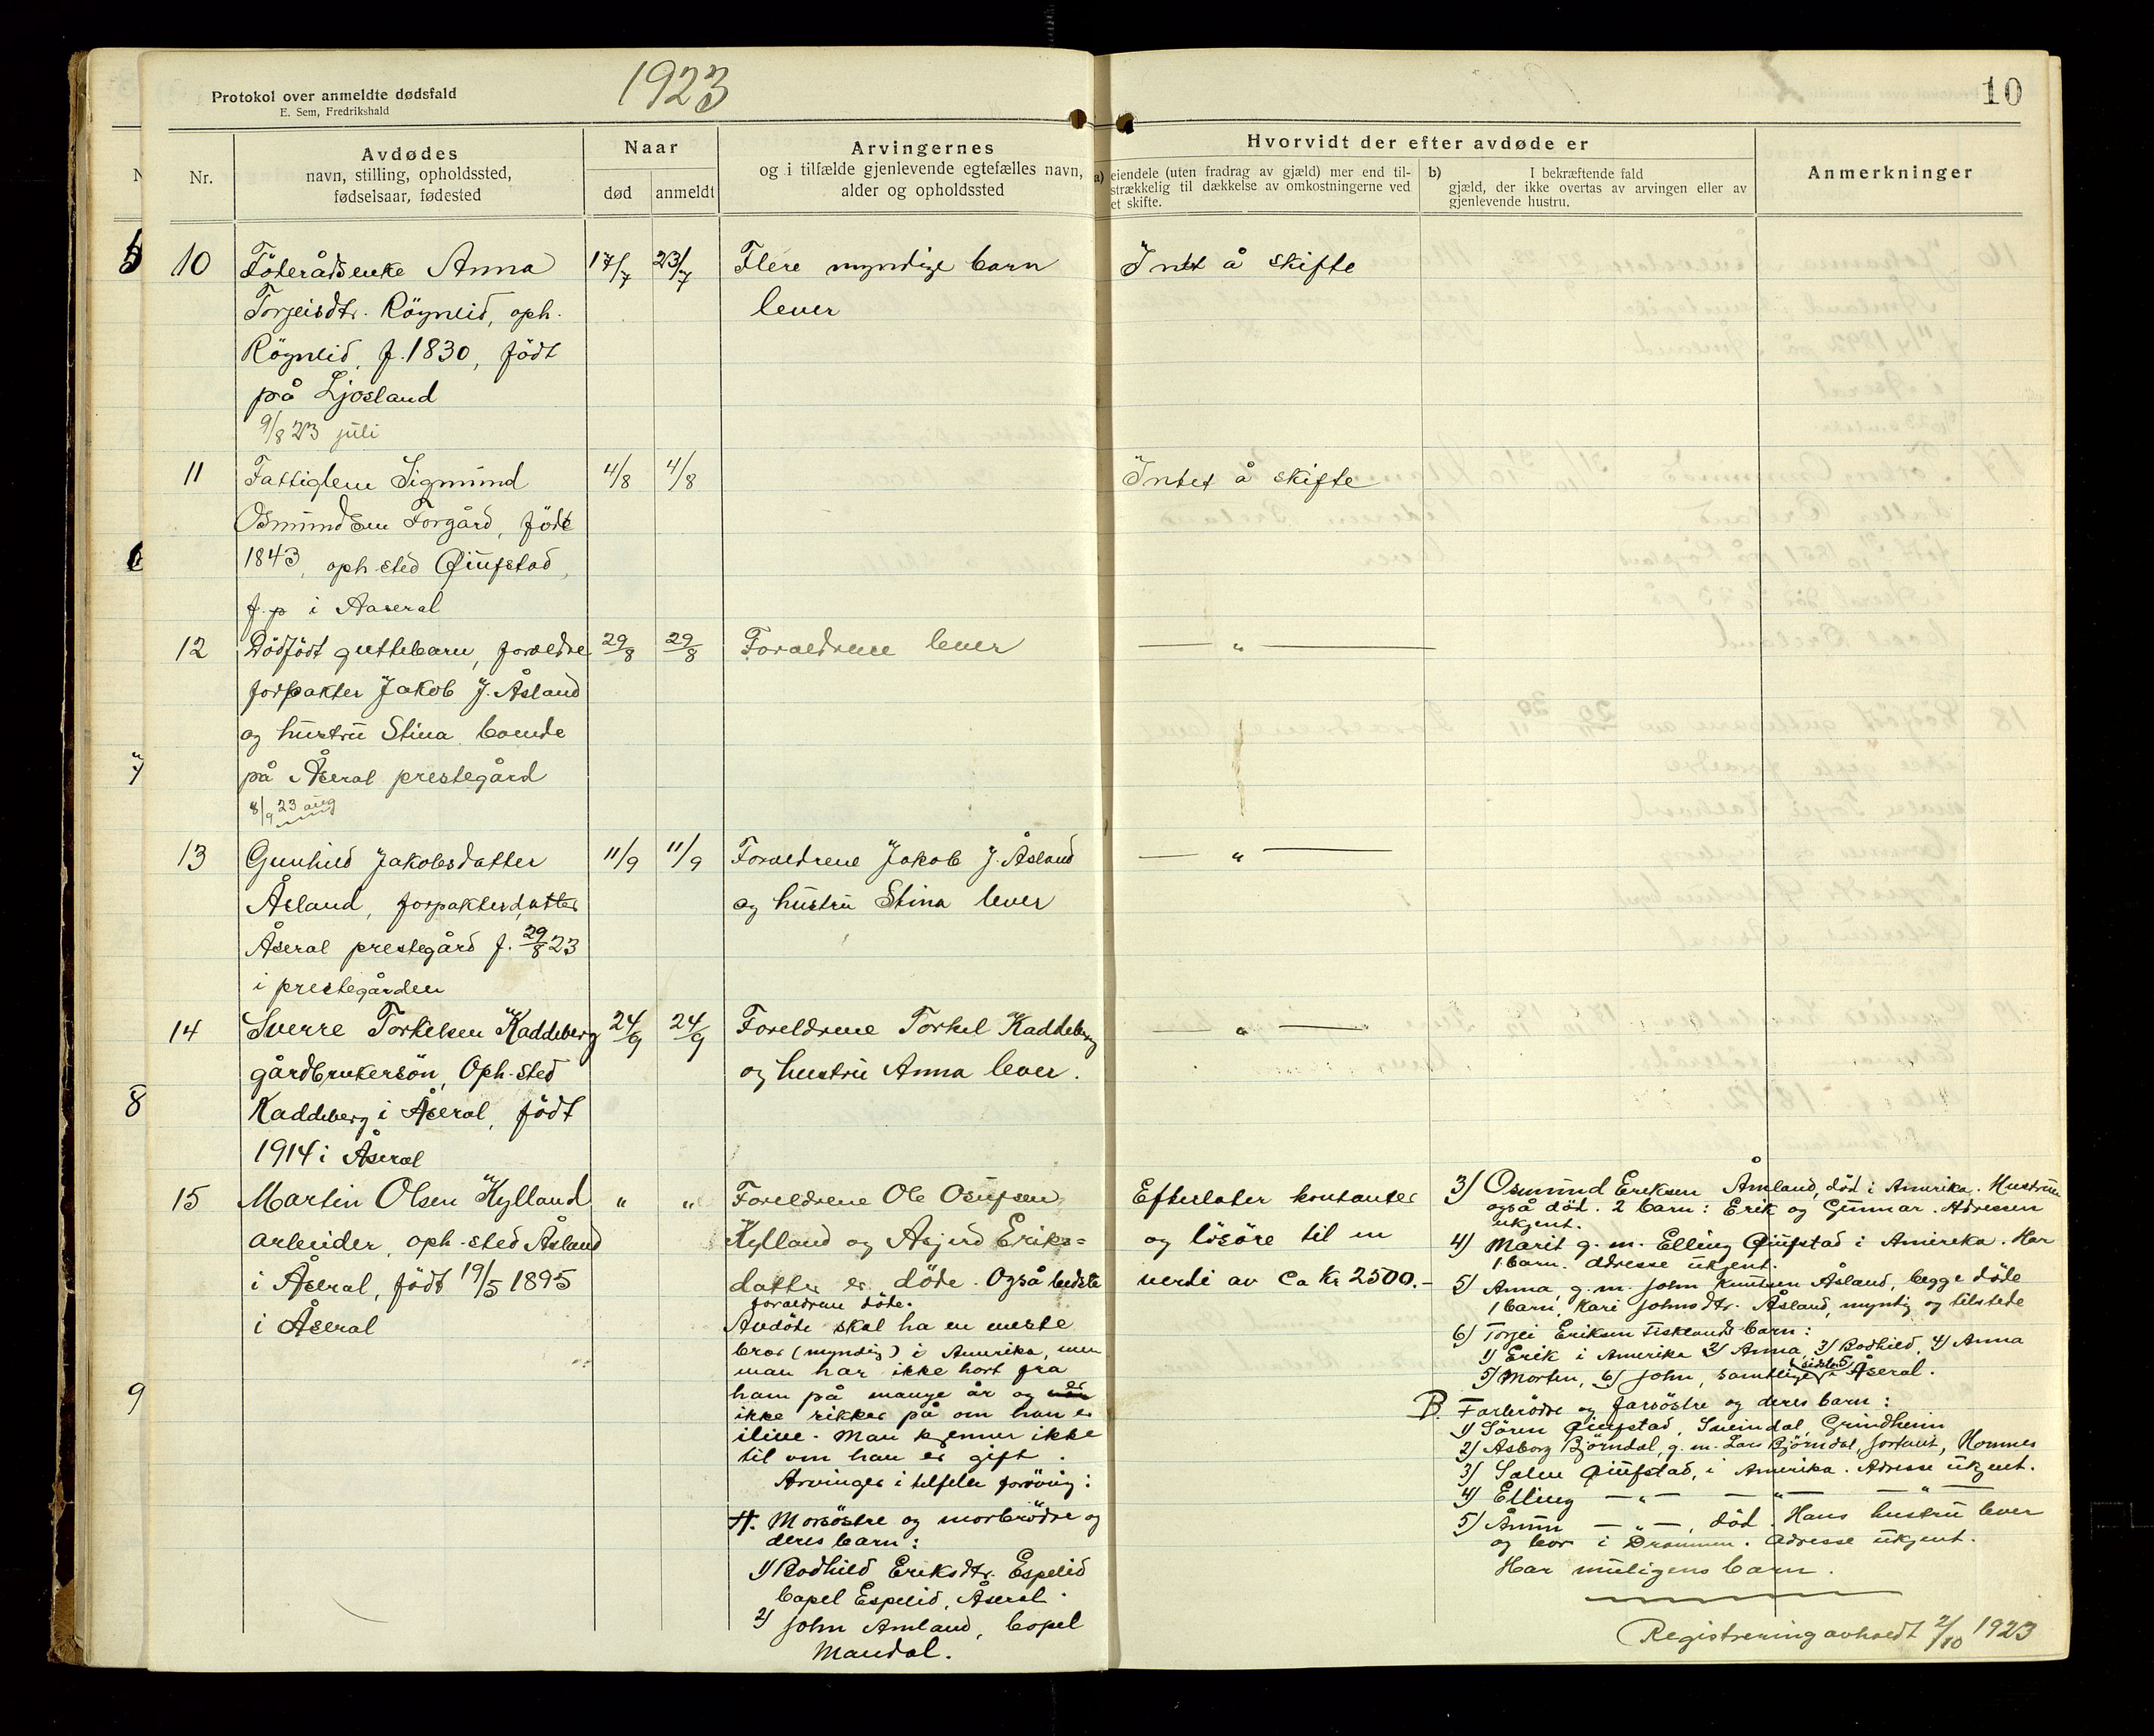 1923
10
Protokol over anmeldte dødsfald
E. Sem, Fredrikshald
Nr.
Avdødes
navn, stilling, opholdssted,
fødselsaar, fødested
Naar
død
anmeldt
Arvingernes
og i tilfælde gjenlevende egtefælles navn,
alder og opholdssted
Hvorvidt der efter avdøde er
a) eiendele (uten fradrag av gjæld) mer end til-
strækkelig til dækkelse av omkostningerne ved
et skifte.
b) I bekræftende fald
gjæld, der ikke overtas av arvingen eller av
gjenlevende hustru.
Anmerkninger
10 Föderådsenke Anna
Torjeisdtr. Röyneid, oph.
Röyneid, f. 1830, födt
på Ljosland
9/8 23 juli
17/7 23/7
Flere myndige barn
lever
Intet å skifte
11 Fattiglem Sigmund
Osmundsen Forgård, födt
1843, oph sted Qiufstad,
f. p i Aaseral
4/8 4/8
Intet å skifte
12 Dödfödt guttebarn, foreldre
forpakter Jakob J. Åsland
og hustru Stina boende
på Åseral prestegård
8/9 23 aug
29/8 29/8
Foraeldrene lever
— " —
13 Gunhild Jakobsdatter
Åsland, forpakterdatter
Åseral prestegård f. 29/8 23
i prestegården
11/9 11/9
Foraeldrene Jakob J. Åsland
og hustru Stina lever
— " —
14 Sverre Torkelsen Kaddeberg
gårdbrukersön, Oph-sted
Kaddeberg i Åseral, födt
1914 i Åseral
24/9 24/9
Foreldrene Torkel Kaddeberg
og hustru Anna lever.
— " —
15 Martin Olsen Kylland
arbeider, oph-sted Åsland
i Åseral, födt 19/5 1895
i Åseral
" "
Foreldrene Ole Osufsen
Kylland og Asjerd Eriks=
datter er döde. Også bedste
foraeldrene döde.
Avdöde skal ha en eneste
bror (myndig) i Amerika, men
man har ikke hört fra
ham på mange år og er
ikke sikker på om han er
ilive. Man kjenner ikke
til om han er gift.
Arvinger i tilfelle forövrig:
A. Morsöstre og morbrödre og
deres barn:
1) Bodhild Eriksdtr. Espelid
bopel Espelid, Åseral.
2) John Amland, bopel
Mandal.
Efterlater kontanter
og lösöre til en
verdi av ca Kr 2500.-
3) Osmund Eriksen Åmland, död i Amerika. Hustruen
også död. 2 barn: Erik og Gunnar. Adressen
ukjent.
4) Marit g. m. Elling Qiufstad i Amerika. Har
1 barn. adresse ukjent.
5) Anna, g. m. John Knutsen Åsland, begge döde
1 barn, Kari Johnsdtr. Åsland, myndig og tilstede
6) Torjei Eriksen Fisklands barn:
1) Erik i Amerika 2) Anna, 3) Bodhild, 4) Anna
5) Morten, 6) John, samtlige (sidste 5) i Åseral.
B. Farbrödre og farsöstre og deres barn:
1) Sören Qiufstad, Sveindal, Grindheim
2) Asborg Björndal, g. m. Lars Björndal, Homnes
3) Salve Qiufstad, i Amerika. Adresse ukjent.
4) Elling — " — — " — — " —
5) Anun — " —, död. Hans hustru lever
og bor i Drammen. adresse ukjent.
Har muligens barn.
Registrering avholdt 2/10 1923
7
8
9